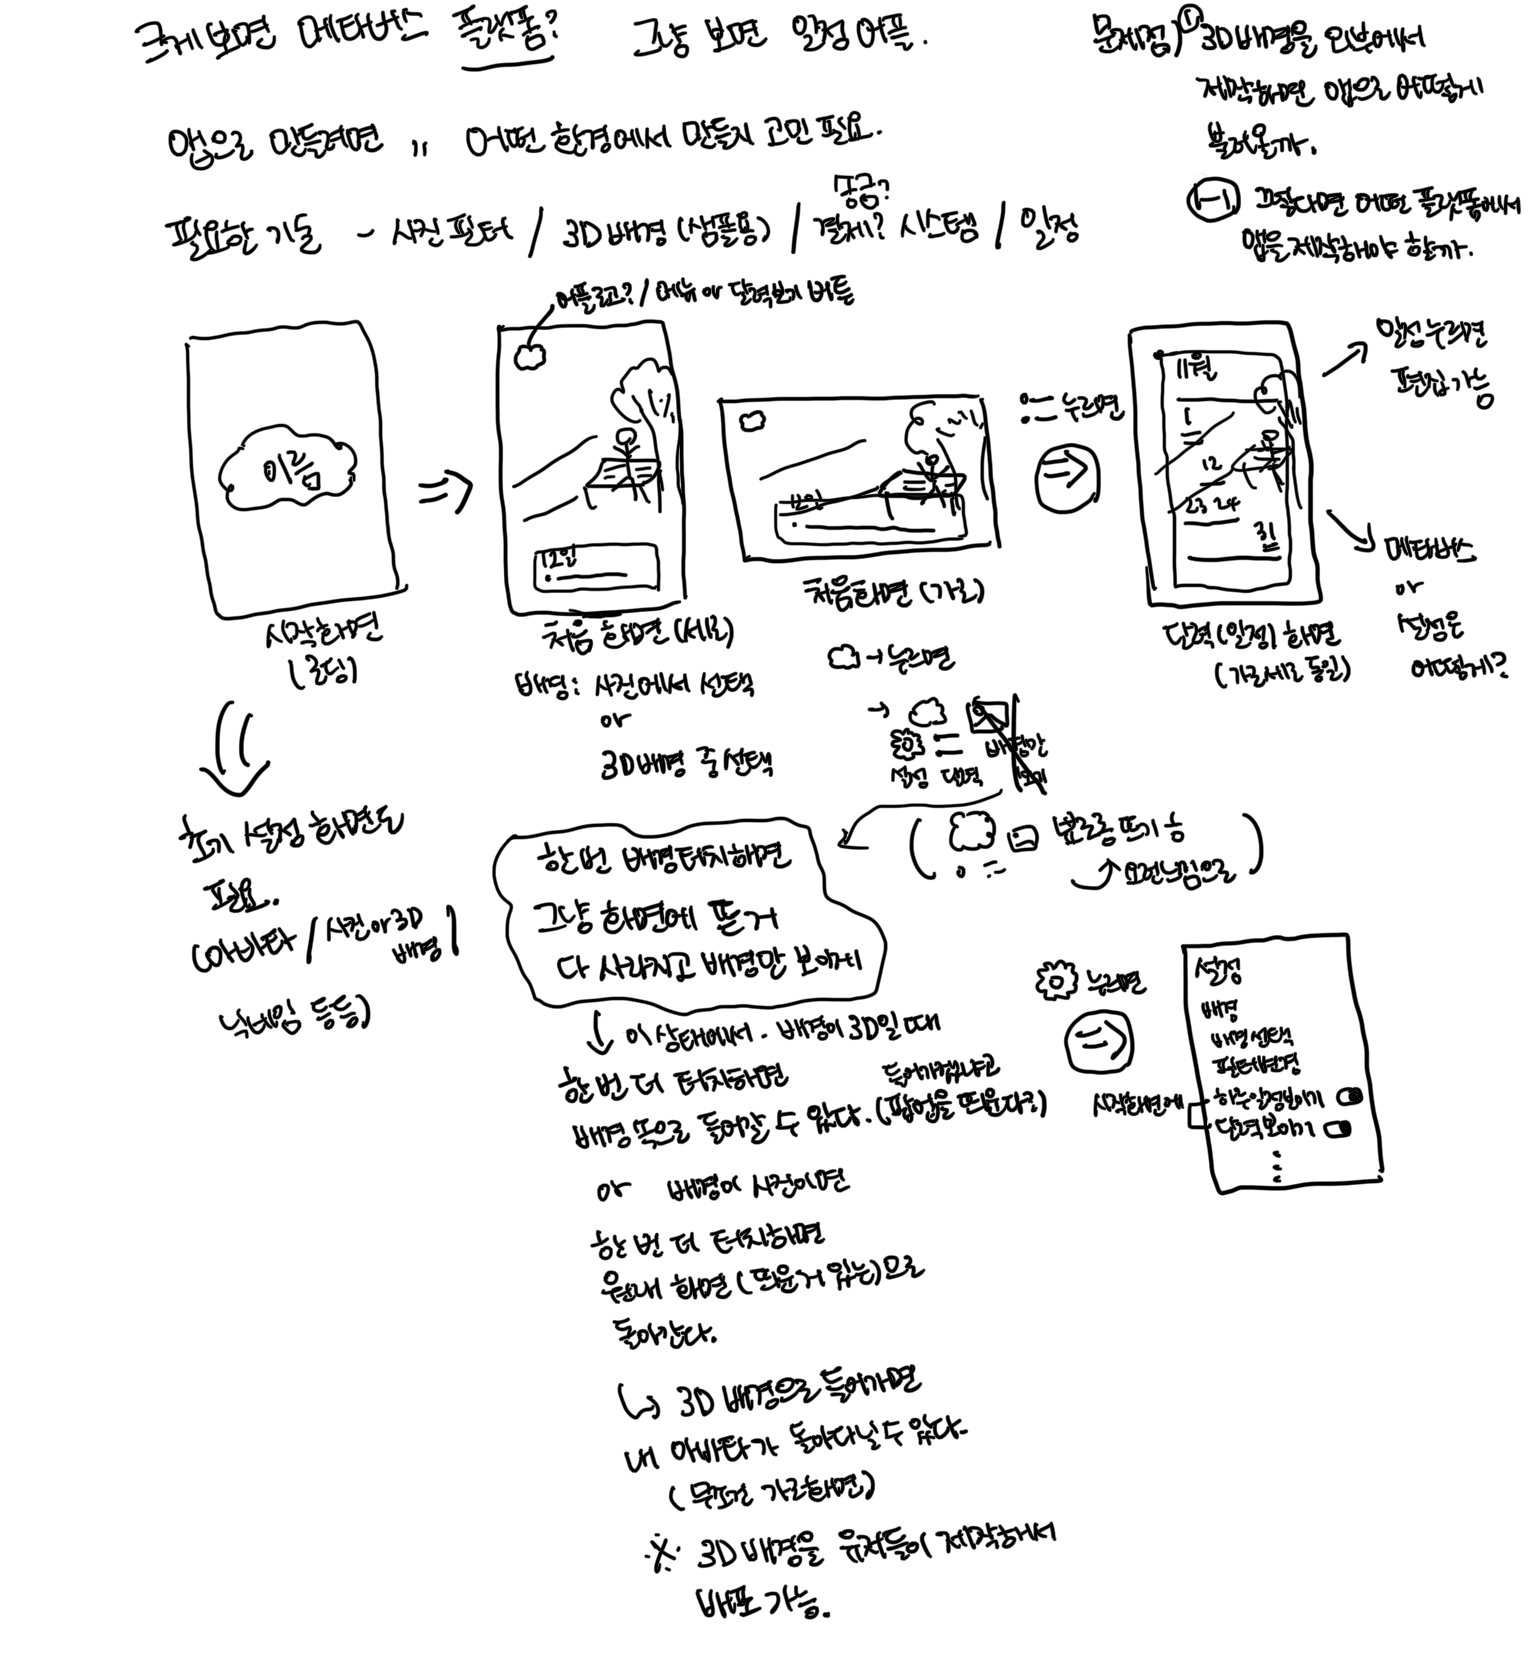 크게보면 메타버스 플랫폼? 그냥 보면 일정 어플.
앱으로 만들려면 〃 어떤 환경에서 만들지 고민 필요.
필요한 기술 - 사진 필터 / 3D배경 (샘플용) / 결제? 시스템 / 일정
송금?
문제점) ① 3D배경을 외부에서
제작하면 앱으로 어떻게
불러올까.
1-1 그렇다면 어떤 플랫폼에서
앱을 제작해야 할까.
어플로고? / 메뉴 or 달력보기 버튼
이름
시작화면
(로딩)
12일
처음 화면 (세로)
배경: 사진에서 선택
or
3D배경 중 선택
12일
처음화면 (가로)
누르면
11월
1
12
23 24
31
달력(일정) 화면
(가로세로 동일)
일정누르면
편집가능
메타버스
or
설정은
어떻게?
→ 누르면
→
설정 달력
배경만
뽀로롱 뜨기 능
요런느낌으로
초기 설정 화면도
필요.
(아바타 / 사진 or 3D
배경)
닉네임 등등)
한번 배경터치하면
그냥 화면에 뜬거
다 사라지고 배경만 보이게
↓ 이 상태에서. 배경이 3D일 때
한 번 더 터치하면
들어가겠냐고
배경 쪽으로 들어갈 수 있다. (팝업을 띄운다?)
or 배경이 사진이면
한 번 더 터치하면
원래 화면 (띄운거 있는)으로
돌아간다.
↳ 3D 배경으로 들어가면
내 아바타가 돌아다닐 수 있다.
(무조건 가로화면)
※ 3D 배경을 유저들이 제작해서
배포 가능.
누르면
시작화면에
설정
배경
배경선택
필터변경
하루일정보이기
달력보이기